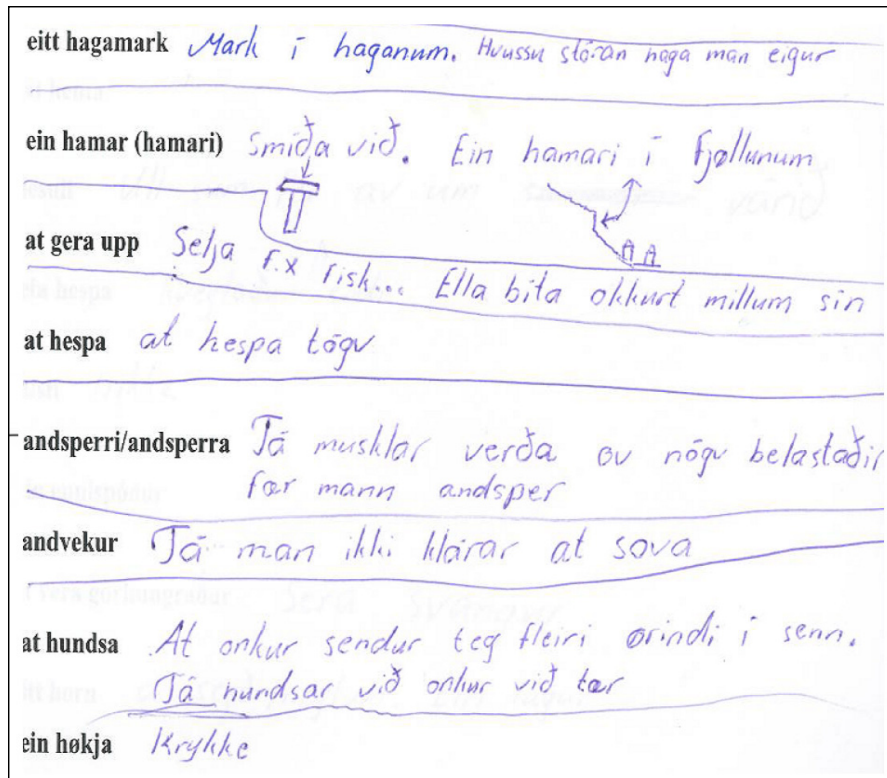 eitt hagamark Mark í haganum. Hvussu stóran haga man eigur
ein hamar (hamari) Smíða við. Ein hamari í Fjøllunum
at gera upp Selja f.x fisk... Ella bíta okkurt millum sín
at hespa at hespa tógv
andsperri/andsperra Tá musklar verða ov nógv belastaðir
fær mann andsper
andvekur Tá man ikki klárar at sova
at hundsa At onkur sendur teg fleiri ørindi í senn.
Tá hundsar við onkur við tær
ein høkja Krykke